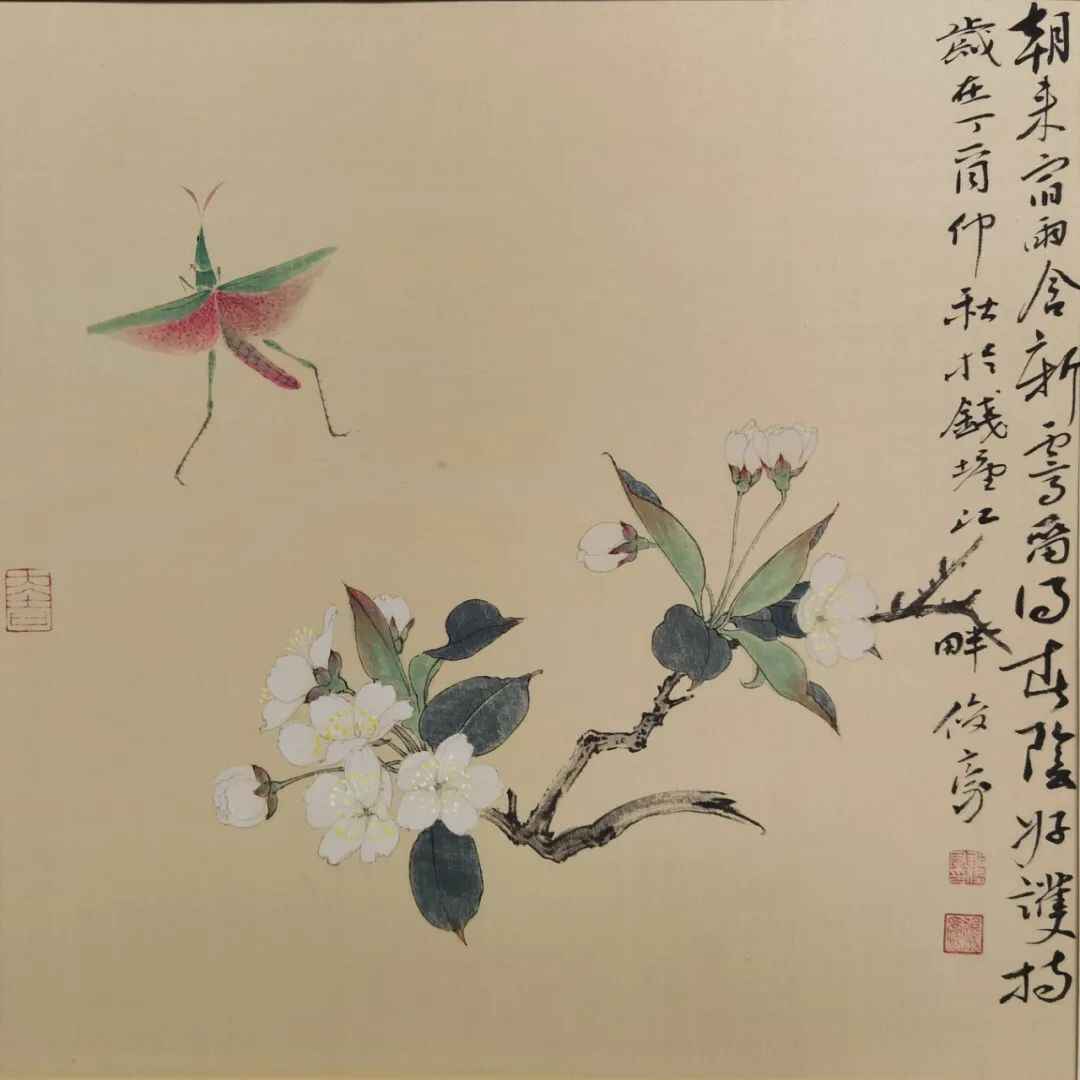 朝来宿雨含新霽留得春陰好護持
歲在丁酉仲秋於錢塘江畔俊豪